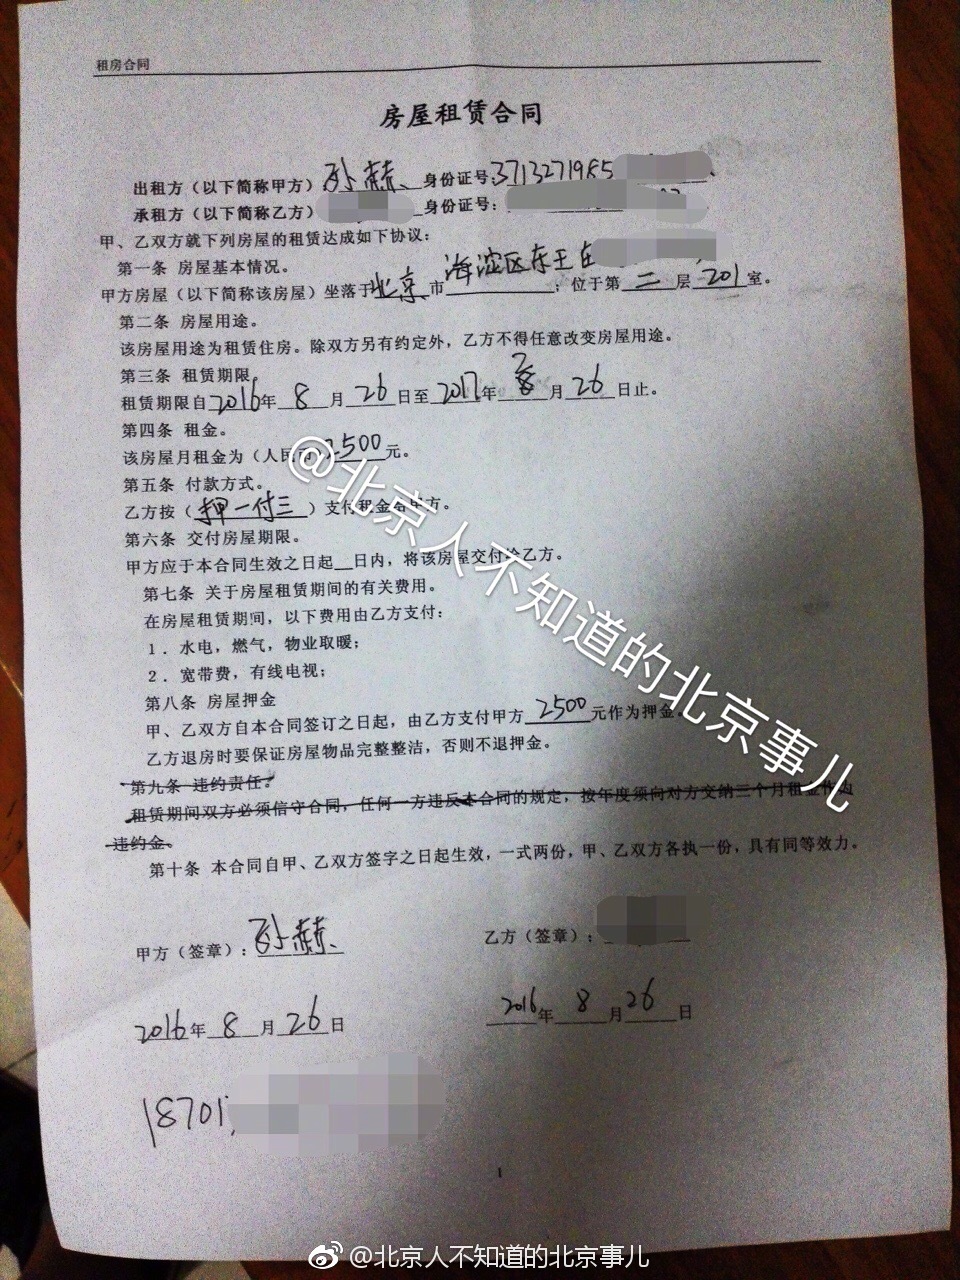 租房合同
房屋租赁合同
出租方（以下简称甲方）孙赫 身份证号:3713271985
承租方（以下简称乙方）身份证号:
甲、乙双方就下列房屋的租赁达成如下协议:
第一条 房屋基本情况。
甲方房屋（以下简称该房屋）坐落于北京市海淀区东王庄；位于第二层201室。
第二条 房屋用途。
该房屋用途为租赁住房。除双方另有约定外，乙方不得任意改变房屋用途。
第三条 租赁期限
租赁期限自2016年8月26日至2017年月26日止。
第四条 租金。
该房屋月租金为（人民币）2500元。
第五条 付款方式。
乙方按（押一付三）支付租金给甲方。
第六条 交付房屋期限。
甲方应于本合同生效之日起__日内，将该房屋交付给乙方。
第七条 关于房屋租赁期间的有关费用。
在房屋租赁期间，以下费用由乙方支付:
1．水电，燃气，物业取暖；
2．宽带费，有线电视；
第八条 房屋押金
甲、乙双方自本合同签订之日起，由乙方支付甲方2500元作为押金。
乙方退房时要保证房屋物品完整整洁，否则不退押金。
第九条 违约责任。
租赁期间双方必须信守合同，任何一方违反本合同的规定，按年度须向对方交纳三个月租金作为
违约金。
第十条 本合同自甲、乙双方签字之日起生效，一式两份，甲、乙双方各执一份，具有同等效力。
甲方（签章）:孙赫 乙方（签章）:
2016年8月26日 2016年8月26日
18701
1
@北京人不知道的北京事儿
@北京人不知道的北京事儿